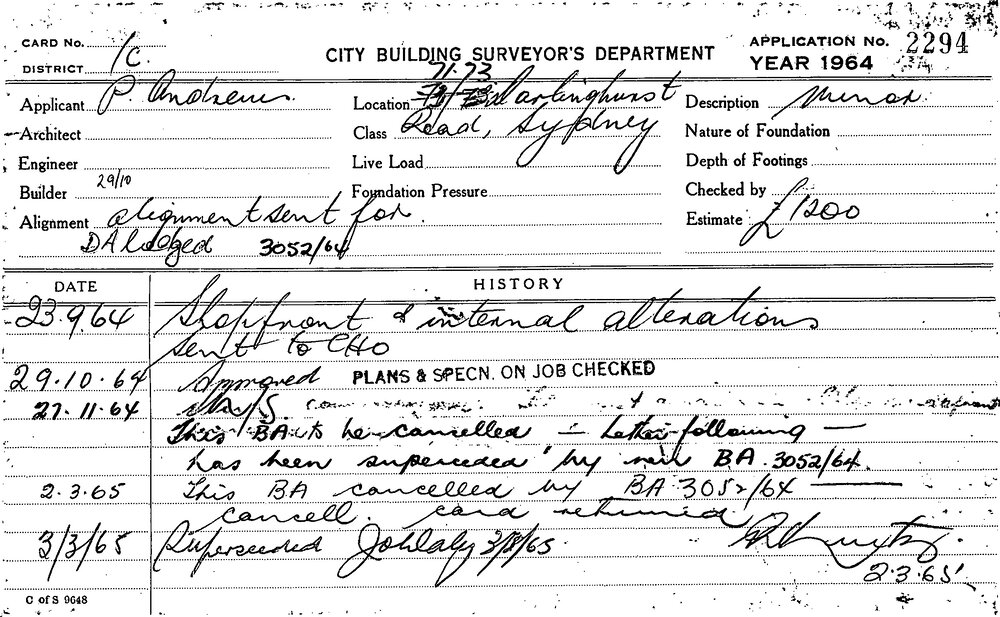 CARD No.
DISTRICT 1C.
CITY BUILDING SURVEYOR'S DEPARTMENT
APPLICATION No. 2294
YEAR 1964
Applicant P. Andrews.
Location 71-73 Darlinghurst
Description Minor.
Architect
Class Road, Sydney
Nature of Foundation
Engineer
Live Load
Depth of Footings
Builder 29/10
Foundation Pressure
Checked by
Alignment alignment sent for.
Estimate £1200
DA lodged 3052/64
DATE
HISTORY
23.9.64 Shopfront & internal alterations
sent to CHO
29.10.64 Approved PLANS & SPECN. ON JOB CHECKED
27.11.64
This BA is to be cancelled - Letter following -
has been superceded by new BA 3052/64.
2.3.65 This BA cancelled by BA 3052/64
cancell. card returned
3/3/65 Superseeded
2.3.65
C of S 9648